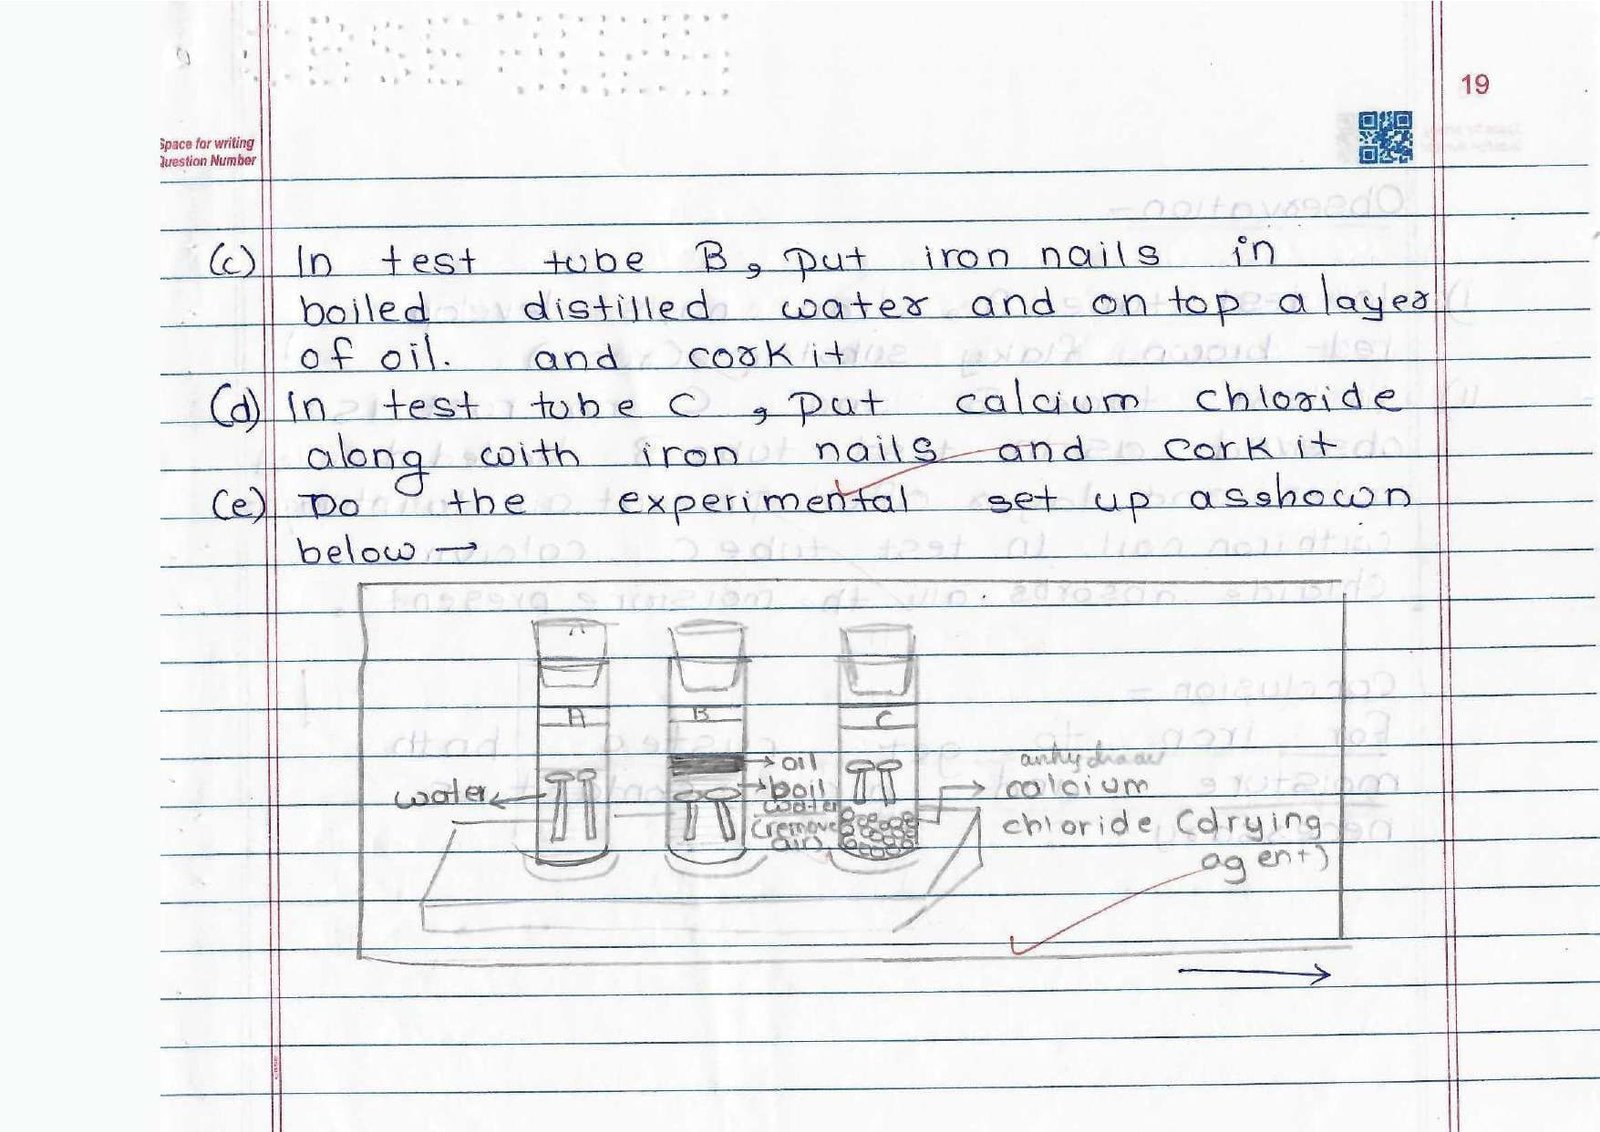 19
Space for writing
Question Number
(c) In test tube B, put iron nails in
boiled distilled water and on top a layer
of oil. and cork it
(d) In test tube C, put calcium chloride
along with iron nails and cork it
(e) Do the experimental set up as shown
below →
A
B
C
water
oil
boil
water
(remove
air)
calcium
chloride (drying
agent)